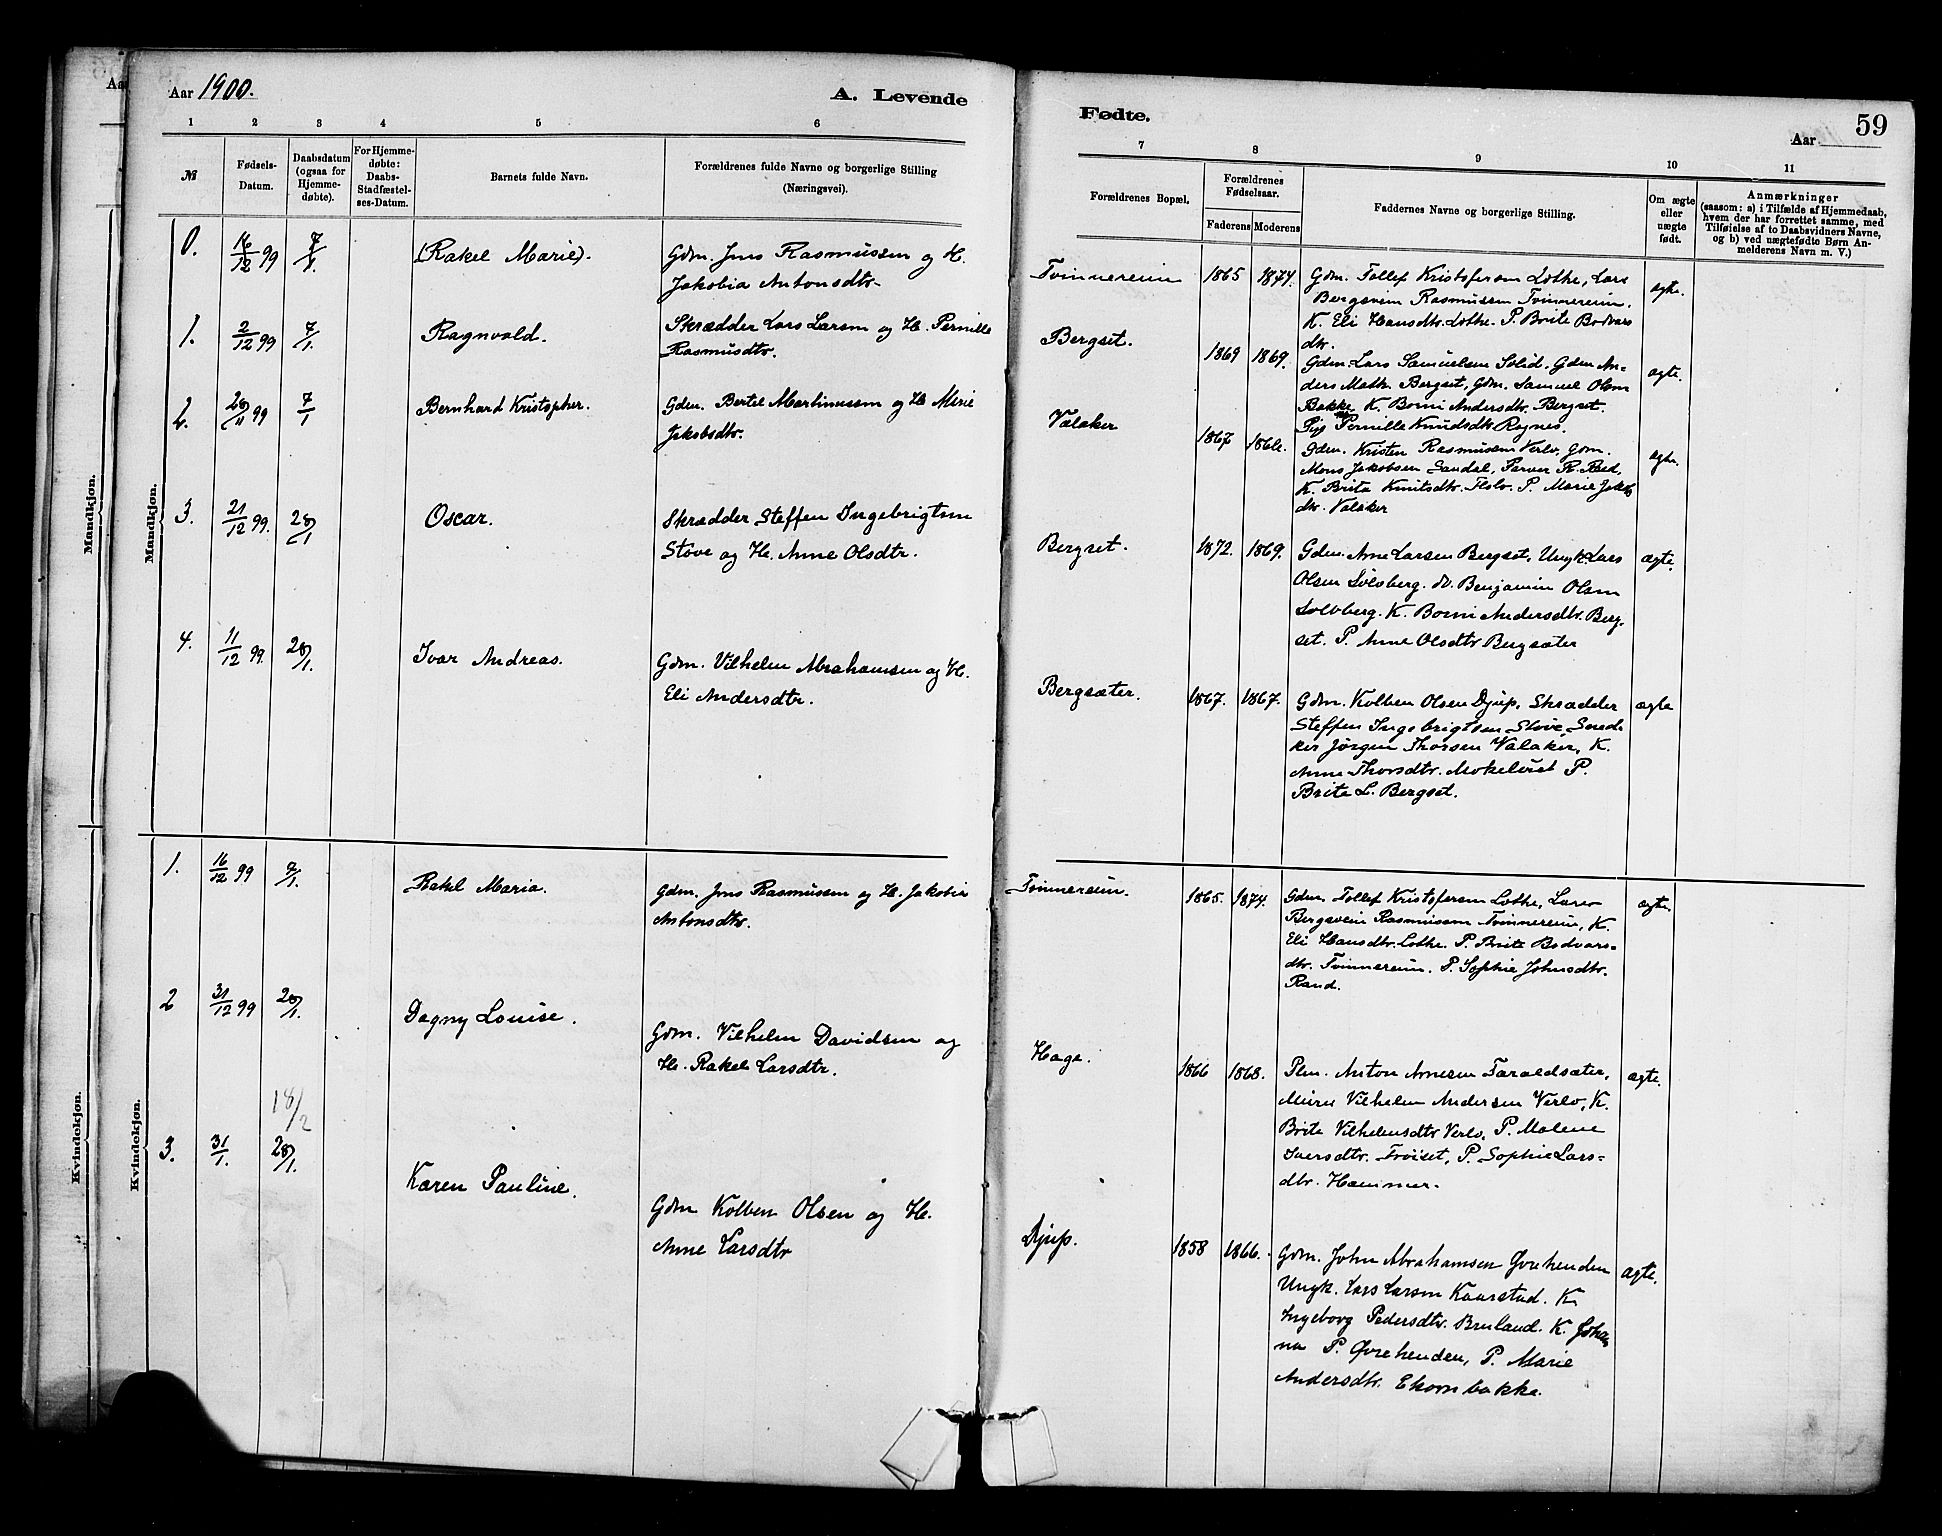 Aar 1900.
A. Levende
Fødte.
59
Aar
1 2 3 4 5 6
7 8 9 10 11
№
Fødsels-
Datum.
Daabsdatum
(ogsaa for
Hjemme-
døbte).
For Hjemme-
døbte:
Daabs-
Stadfæstel-
ses-Datum.
Barnets fulde Navn.
Forældrenes fulde Navne og borgerlige Stilling
(Næringsvei).
Forældrenes Bopæl.
Forældrenes
Fødselsaar.
Faderens Moderens
Faddernes Navne og borgerlige Stilling.
Om ægte
eller
uægte
født.
Anmærkninger
(saasom: a) i Tilfælde af Hjemmedaab,
hvem der har forrettet samme, med
Tilføielse af to Daabsvidners Navne,
og b) ved uægtefødte Børn An-
melderens Navn m. V.)
Mandkjøn.
Mandkjøn.
0. 16/12 99 7/1. (Rakel Marie).
Gdm. Jens Rasmussen og H.
Jakobia Antonsdtr.
Tvinnereim 1865 1874.
Gdm. Tollef Kristofersen Lothe, Lars
Bergsvein Rasmussen Tvinnereim.
K. Eli Hansdtr. Lothe. P. Brite Bodvars
dtr.
ægte.
1. 2/12 99 7/1. Ragnvald.
Skrædder Lars Larsen og H. Pernille
Rasmusdtr.
Bergset. 1869 1869.
Gdm. Lars Samuelsen Solid. Gdm An-
ders Math. Bergset, Gdm. Samuel Olsen
Bakke K. Borni Andersdtr. Bergset.
Pernille Knudsdtr Rognes.
ægte.
2. 28/11 99 7/1 Bernhard Kristopher.
Gdm. Bertel Martinussen og H Marie
Jakobsdtr.
Valaker 1867 1866.
Gdm. Kristen Rasmussen Verlo, Gdm.
Mons Jakobsen Sandal,
K. Brita Knutsdtr. P. Marie Jakobs
dtr. Valaker
ægte.
3. 21/12 99. 28/1 Oscar.
Skrædder Steffen Ingebrigtsen
Støve og H. Anne Olsdtr.
Bergset. 1872. 1869.
Gdm. Arne Larsen Bergset, Ungk. Lars
Olsen Solvberg. do. Benjamin Olsen
Solvberg. K. Borni Andersdtr. Berg-
set. P. Anne Olsdtr Bergsæter
ægte.
4. 11/12 99. 28/1. Ivar Andreas.
Gdm. Vilhelm Abrahamsen og H.
Eli Andersdtr.
Bergsæter. 1867. 1867.
Gdm. Kolben Olsen Djup, Skrædder
Steffen Ingebrigtsen Støve, Sned-
ker Jørgen Thorsen Valaker, K.
Anne Thorsdtr. Mokelvist P.
Brita L. Bergset.
ægte
Kvindekjøn.
Kvindekjøn.
1. 16/12 99 7/1. Rakel Maria.
Gdm. Jens Rasmussen og H. Jakobia
Antonsdtr.
Tvinnereim. 1865. 1874.
Gdm. Tollef Kristofersen Lothe, Lars
Bergsvein Rasmussen Tvinnereim, K.
Eli Hansdtr. Lothe. P. Brite Bodvars-
dtr. Tvinnereim. P. Sophie Johnsdtr.
Rand.
ægte.
2 31/12 99 28/1. Dagny Louise.
Gdm. Vilhelm Davidsen og
H. Rakel Larsdtr.
Hage. 1866 1868.
Plm. Anton Arnesen Taraldsæter,
Murer Vilhelm Andersen Verlo, K.
Brite Vilhelmsdtr Verlo, P. Malene
Iversdtr. P. Sophie Lars-
dtr. Hammer.
ægte.
18/2
3. 31/1. 28/1. Karen Pauline.
Gdm Kolben Olsen og H.
Anne Larsdtr
Djup. 1858 1866.
Gdm. John Abrahamsen Øvrehenden
Ungk. Lars Larsen Kaarstad. K.
Ingeborg Pedersdtr. Bruland. K. Johan
na P. Øvrehenden, P. Marie
Andersdtr. Ekornbakke.
ægte.